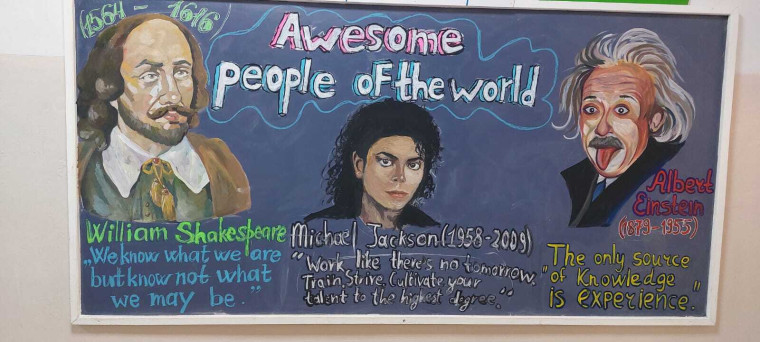 (1564 - 1616
Awesome
people of the world
William Shakespeare
„We know what we are
but know not what
we may be.”
Michael Jackson (1958-2009)
“Work like there's no tomorrow.
Train, Strive, Cultivate your
talent to the highest degree.”
Albert
Einstein
(1879-1955)
The only source
"of Knowledge
is EXPERIENCE."